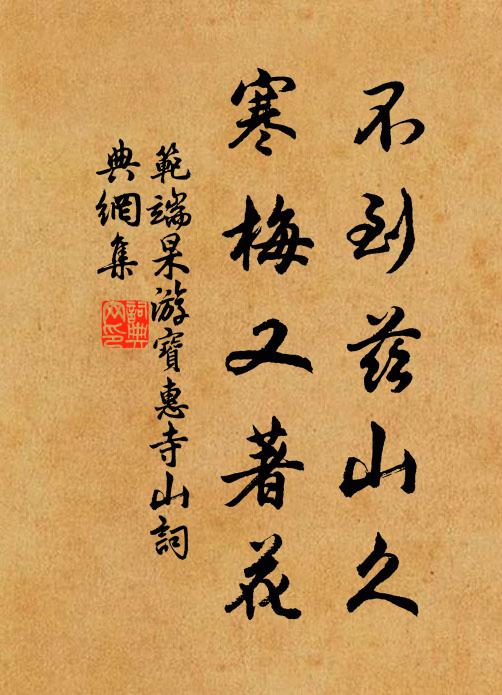 不到茲山久
寒梅又著花
範端杲游寶惠寺山詞
典網集
詞典
網印